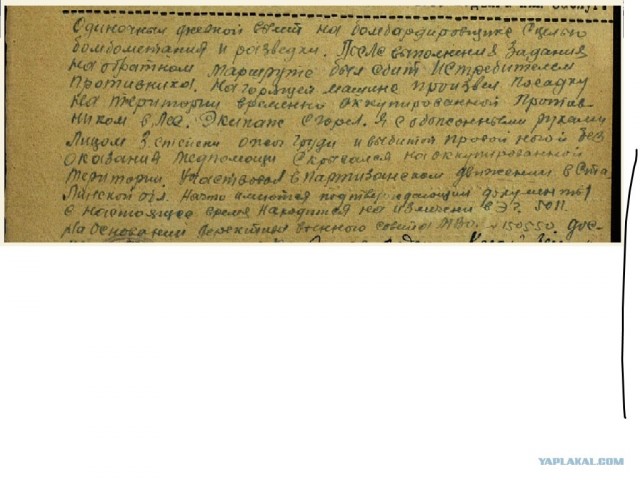 Одиночный дневной вылет на бомбардировщике с целью
бомбометания и разведки. После выполнения задания
на обратном маршруте был сбит истребителем
противника. На горящей машине произвел посадку
на територии временно оккупированной против-
ником в лес. Экипаж сгорел. Я с обожженными руками
лицом 3 степени ожог груди и выбитой правой ногой без
оказания медпомощи скрывался на оккупированной
територии. Участвовал в партизанском движении в Ста-
линской обл. На это имеются подтверждающие документы
в настоящее время находится на излечении в ЭГ. 5011
На основании директивы военного совета МВО.
YAPLAKAL.COM